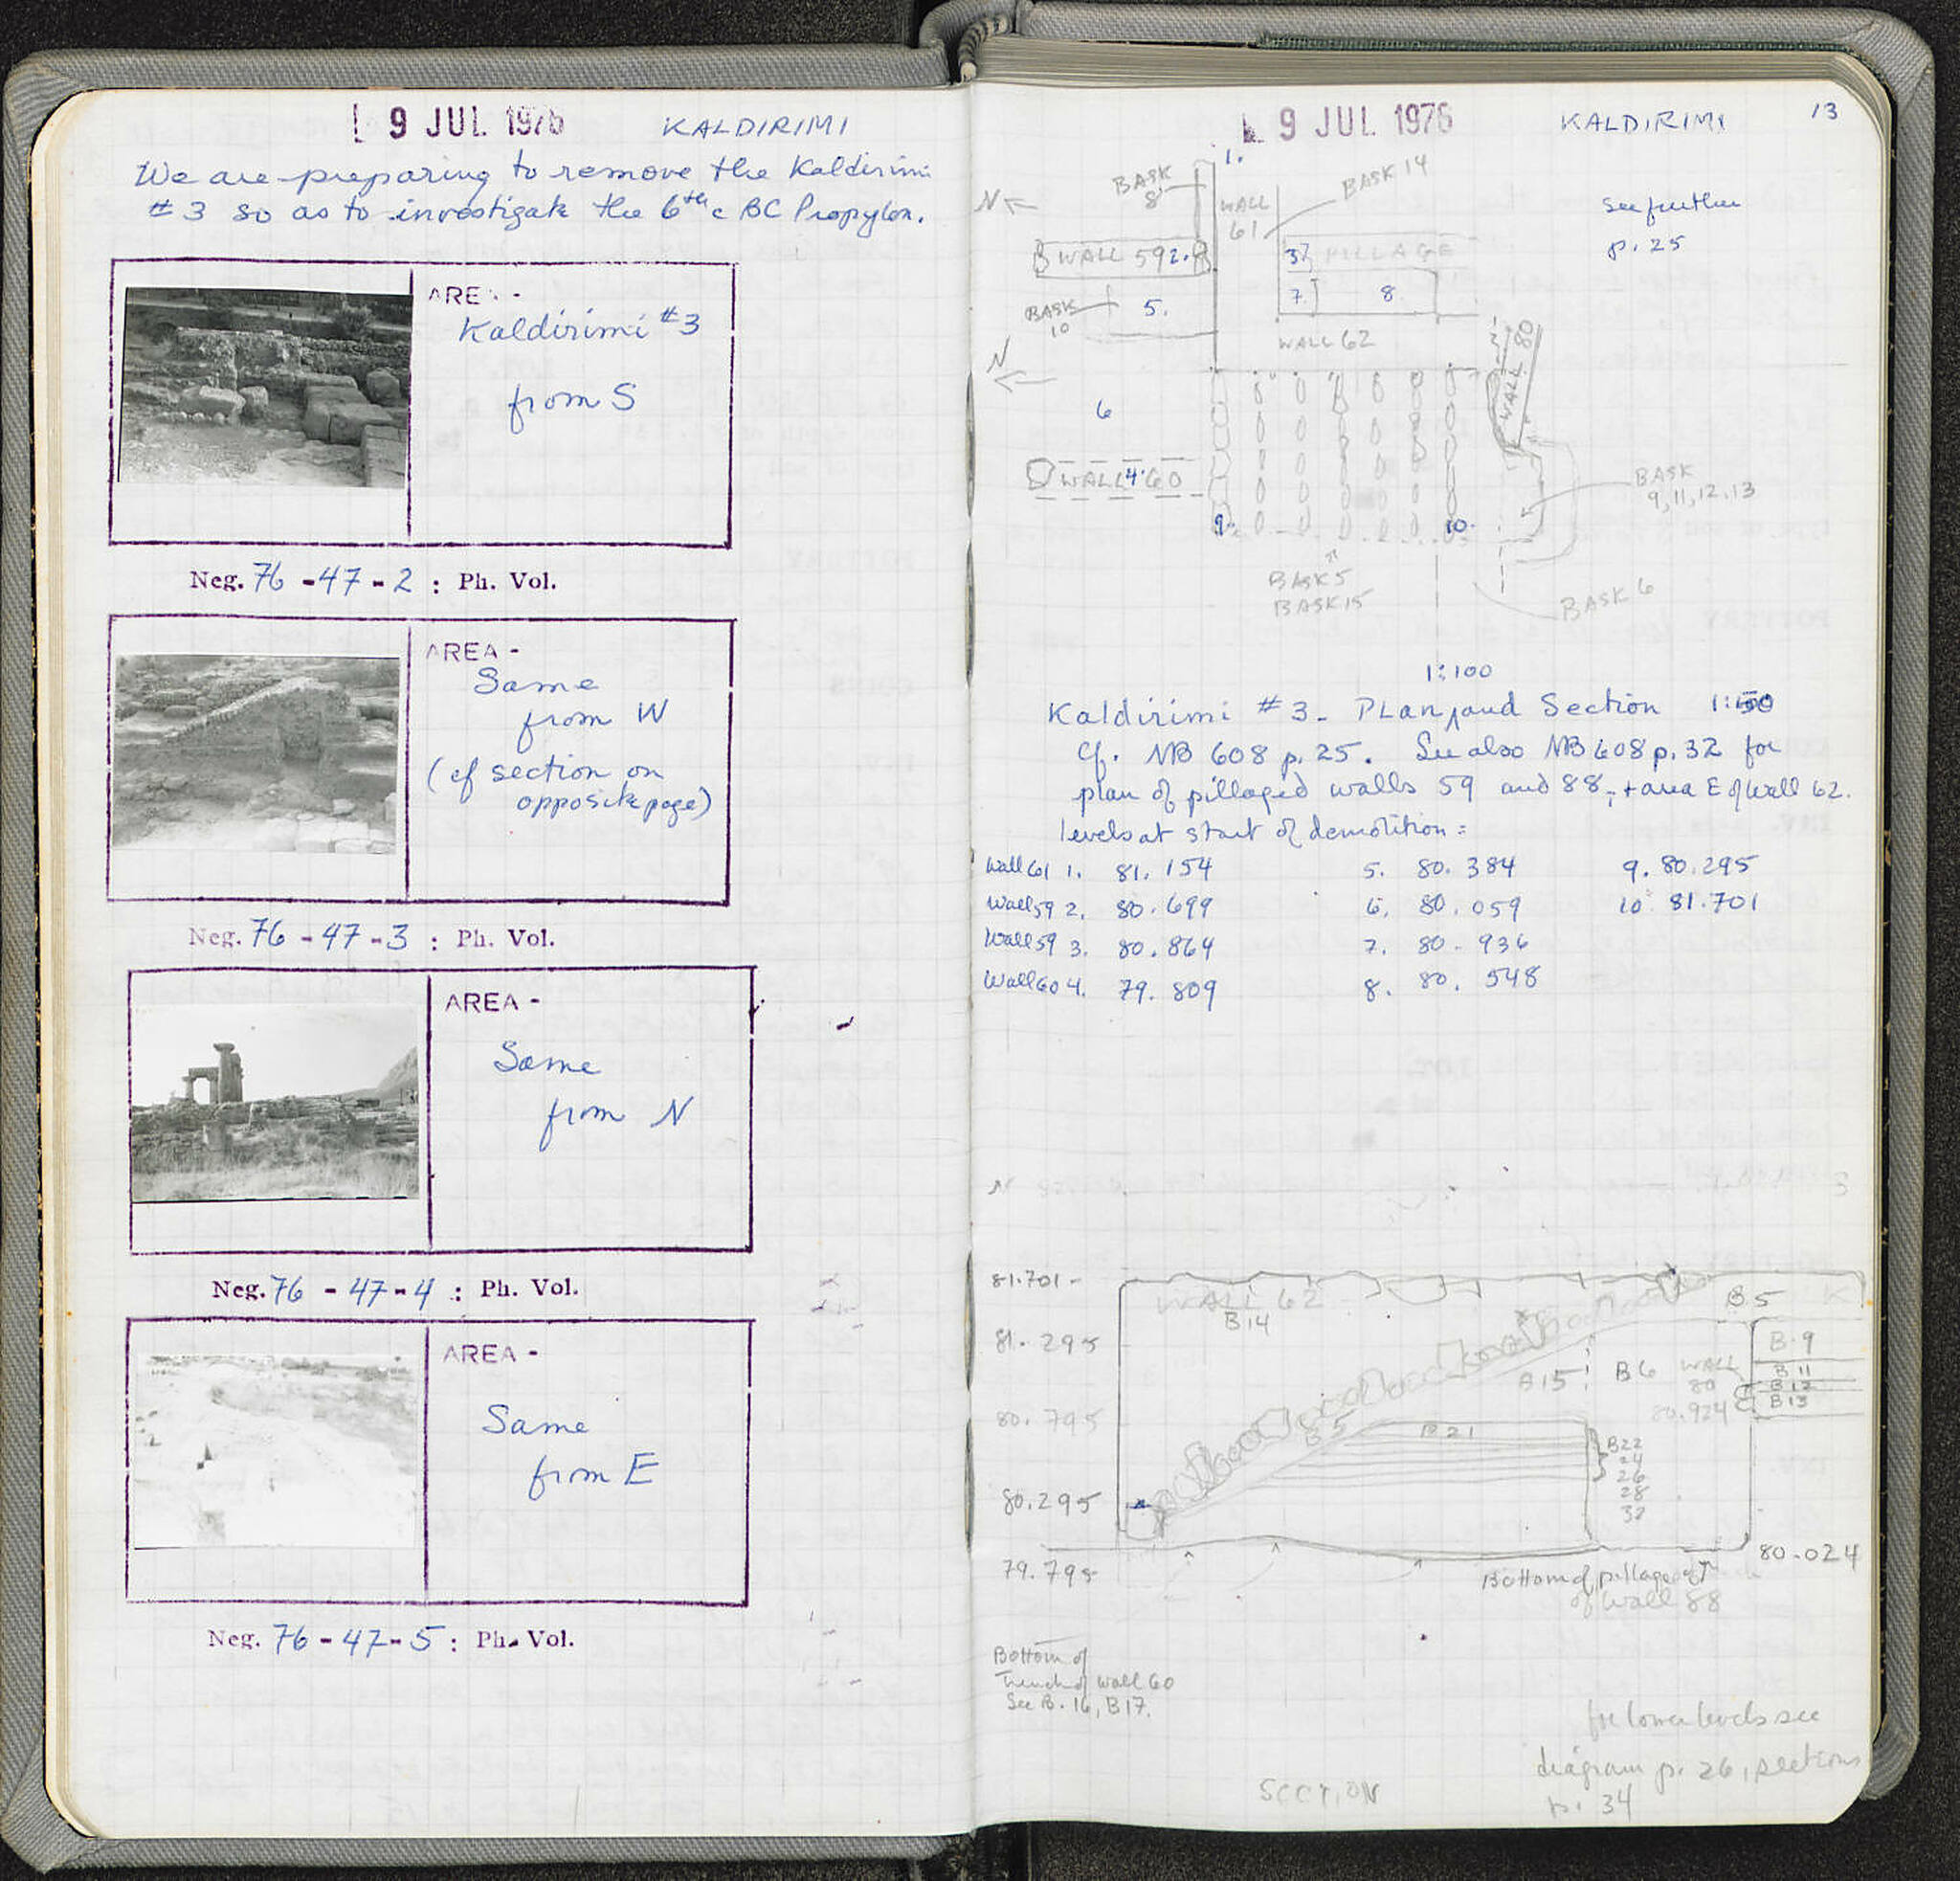 9 JUL 1976 KALDIRIMI
We are preparing to remove the Kaldirimi
#3 so as to investigate the 6th c BC Propylon.
AREA -
Kaldirimi #3
from S
Neg. 76 - 47 - 2 : Ph. Vol.
AREA -
Same
from W
(cf section on
opposite page)
Neg. 76 - 47 - 3 : Ph. Vol.
AREA -
Same
from N
Neg. 76 - 47 - 4 : Ph. Vol.
AREA -
Same
from E
Neg. 76 - 47 - 5 : Ph. Vol.
9 JUL 1976 KALDIRIMI 13
1.
BASK
8
BASK 14
N
WALL
61
See further
p. 25
WALL 59 2.
3. PILLAGE
BASK
10
5.
7. 8.
WALL 62
WALL 80
N
6
WALL 4. 60
BASK
9, 11, 12, 13
9. 10.
BASK 5
BASK 15
BASK 6
1:100
Kaldirimi #3 - Plan, and Section 1:50
Cf. NB 608 p. 25. See also NB 608 p. 32 for
plan of pillaged walls 59 and 88, + area E of Wall 62.
levels at start of demolition:
Wall 61 1. 81.154 5. 80.384 9. 80.295
Wall 59 2. 80.699 6. 80.059 10. 81.701
Wall 59 3. 80.864 7. 80.936
Wall 60 4. 79.809 8. 80.548
N S
81.701 -
WALL 62
B14
B5
81.295
B 9
B15
B6
WALL
80
80.924
B 11
B 12
B 13
80.795
B5
B21
B22
24
26
28
32
80.295
79.795
80.024
Bottom of pillage of
of Wall 88
Bottom of
Trench of Wall 60
See B. 16, B17.
for lower levels see
diagram p. 26, sections
p. 34
SECTION